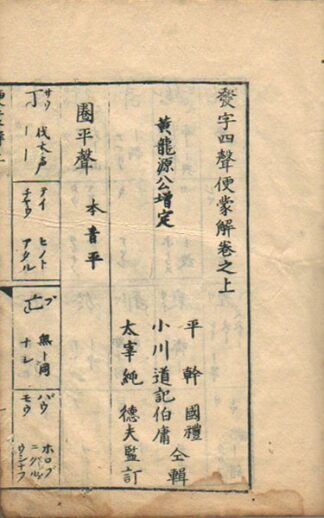 發字四聲便蒙解卷之上
平 幹 國禮
小川道記伯庸
仝輯
太宰純 德夫監訂
黃龍源公增定
圏平聲 本音平
丁 サウ 伐木声 丨丨
テイ チヤウ ヒノト アタル
亡 ブ 無ト同 ナシ
バウ モウ ホロブ ニグル ウシナフ